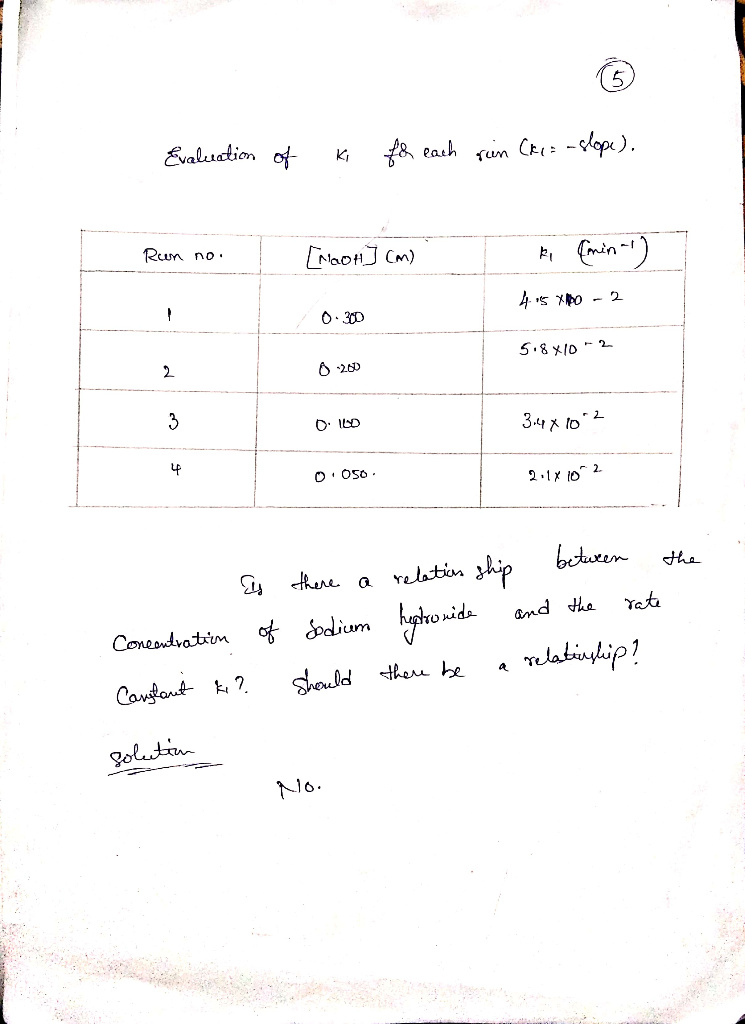 5
Evaluation of K1 for each run (K1 = -slope).
Run no. [NaOH] (m) k1 (min-1)
1 0.300 4.15 x100 - 2
2 0.200 5.8 x10 - 2
3 0.100 3.4 x 10-2
4 0.050. 2.1 x 10-2
Is there a relation ship between the
Concentration of Sodium hydroxide and the rate
Constant k1? Should there be a relationship?
Solution
No.